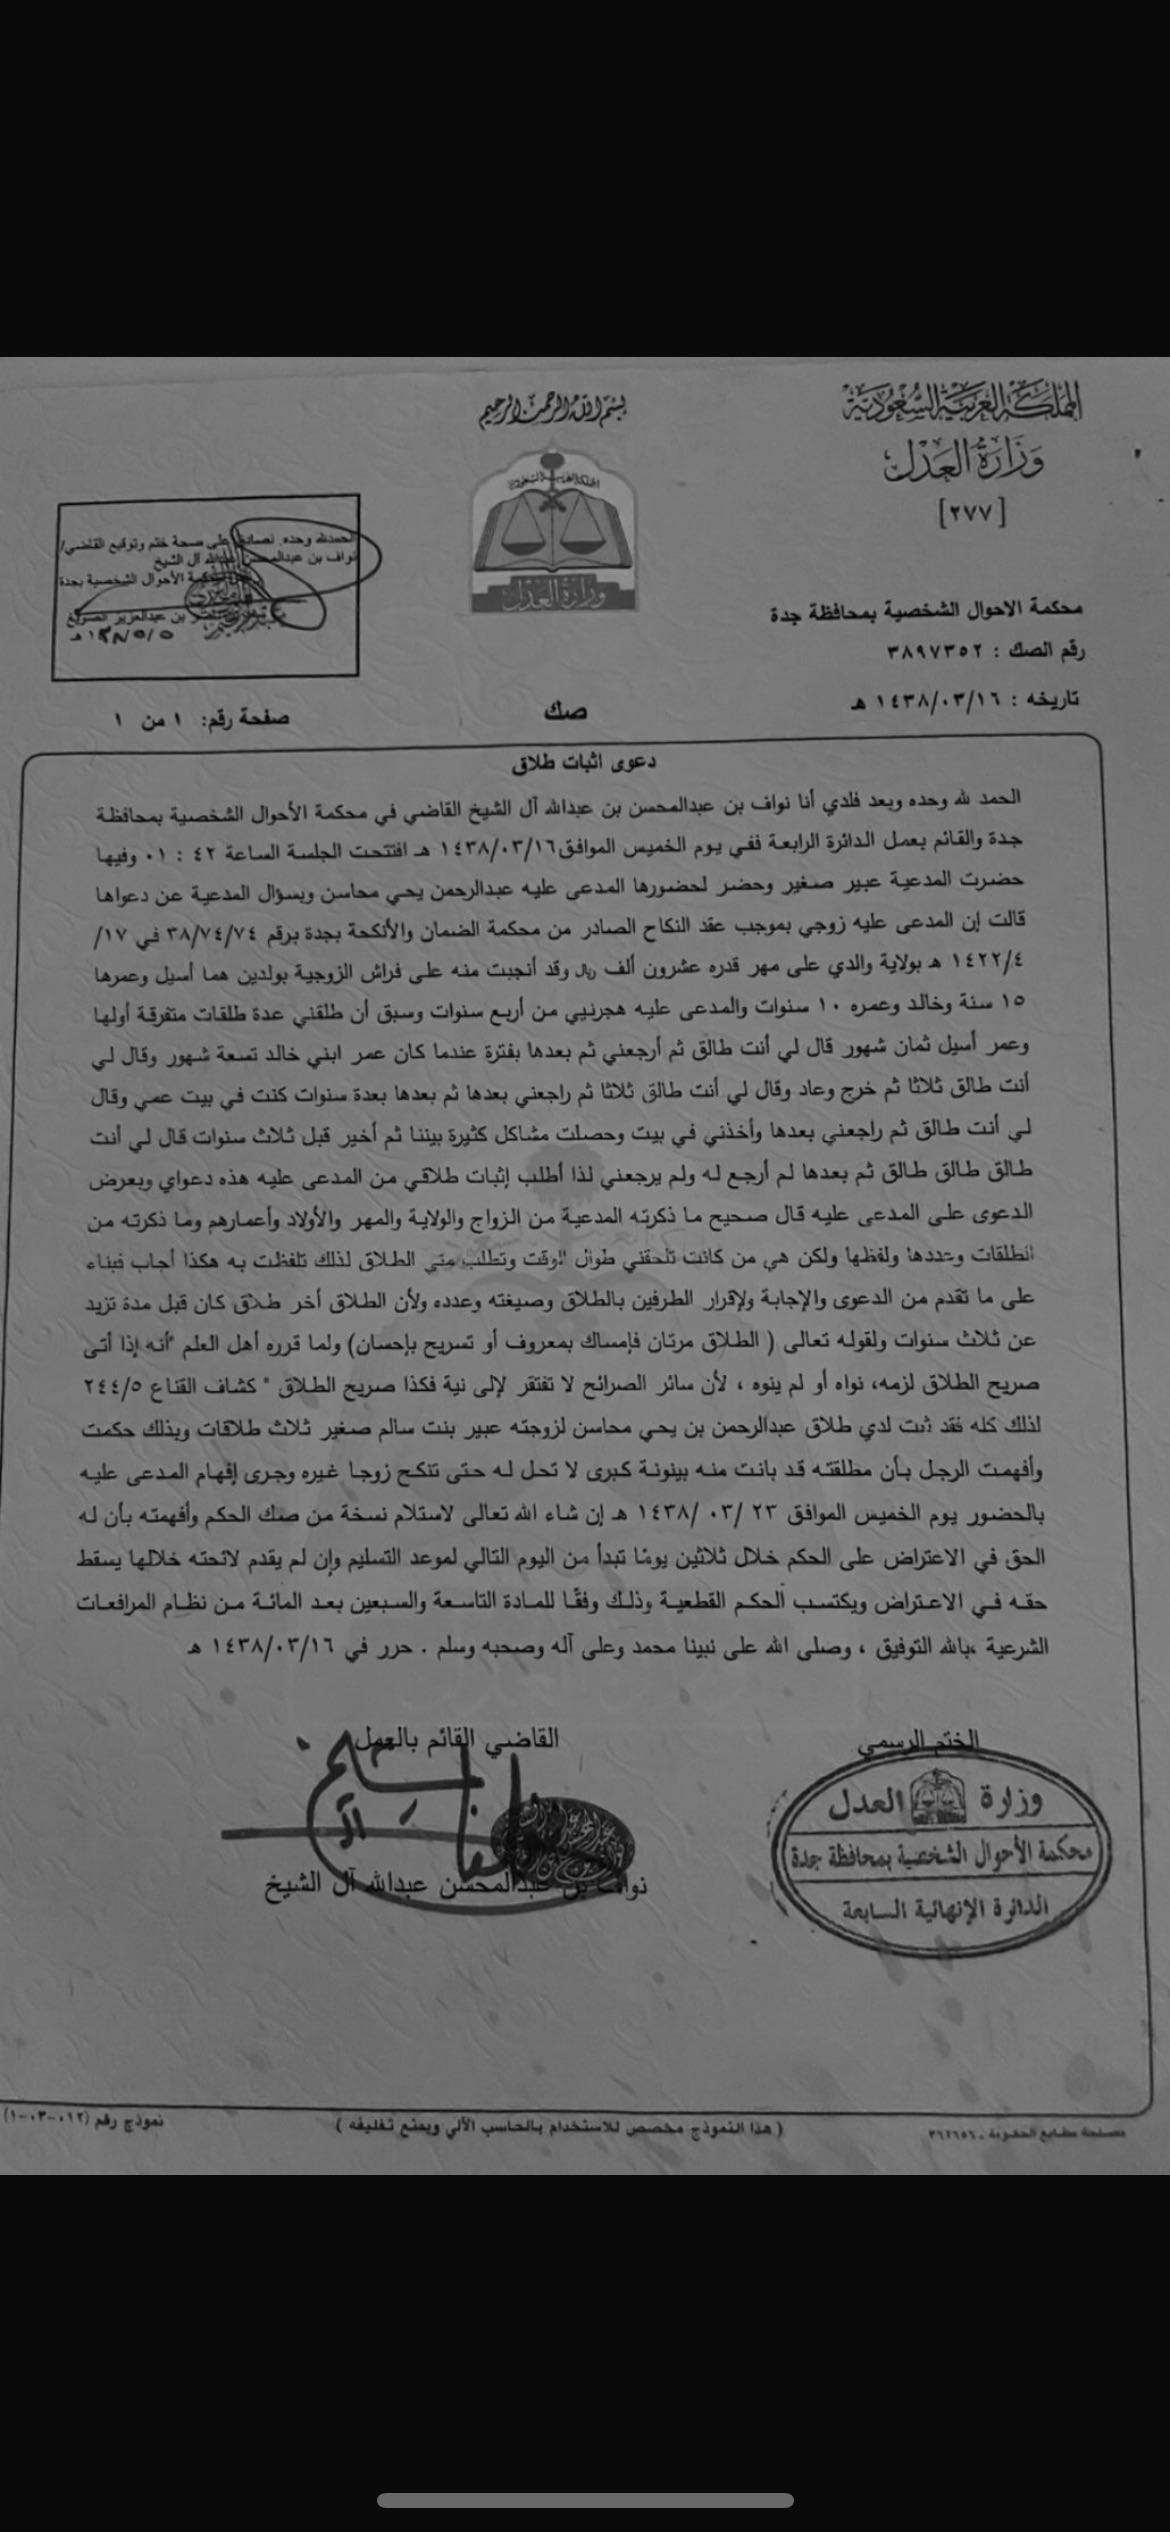 بسم الله الرحمن الرحيم
المملكة العربية السعودية
وزارة العدل
[٢٧٧]
المملكة العربية السعودية
وزارة العدل
الحمدلله وحده، نصادق على صحة ختم وتوقيع القاضي/
نواف بن عبدالمحسن عبدالله آل الشيخ
محكمة الأحوال الشخصية بجدة
بن عبدالعزيز
محكمة الاحوال الشخصية بمحافظة جدة
رقم الصك : ٣٨٩٧٣٥٢
تاريخه : ١٤٣٨/٠٣/١٦ هـ
صك
صفحة رقم: ١ من ١
دعوى اثبات طلاق
الحمد لله وحده وبعد فلدي أنا نواف بن عبدالمحسن بن عبدالله آل الشيخ القاضي في محكمة الأحوال الشخصية بمحافظة
جدة والقائم بعمل الدائرة الرابعة ففي يوم الخميس الموافق١٤٣٨/٠٣/١٦ هـ افتتحت الجلسة الساعة ٤٢ : ٠١ وفيها
حضرت المدعية عبير صغير وحضر لحضورها المدعى عليه عبدالرحمن يحي محاسن وبسؤال المدعية عن دعواها
قالت إن المدعى عليه زوجي بموجب عقد النكاح الصادر من محكمة الضمان والأنكحة بجدة برقم ٣٨/٧٤/٧٤ في ١٧/
١٤٢٢/٤ هـ بولاية والدي على مهر قدره عشرون ألف ريال وقد أنجبت منه على فراش الزوجية بولدين هما أسيل وعمرها
١٥ سنة وخالد وعمره ١٠ سنوات والمدعى عليه هجرنيي من أربع سنوات وسبق أن طلقني عدة طلقات متفرقة أولها
وعمر أسيل ثمان شهور قال لي أنت طالق ثم أرجعني ثم بعدها بفترة عندما كان عمر ابني خالد تسعة شهور وقال لي
أنت طالق ثلاثا ثم خرج وعاد وقال لي أنت طالق ثلاثا ثم راجعني بعدها ثم بعدها بعدة سنوات كنت في بيت عمي وقال
لي أنت طالق ثم راجعني بعدها وأخذني في بيت وحصلت مشاكل كثيرة بيننا ثم أخير قبل ثلاث سنوات قال لي أنت
طالق طالق طالق ثم بعدها لم أرجع له ولم يرجعني لذا أطلب إثبات طلاقي من المدعى عليه هذه دعواي وبعرض
الدعوى على المدعى عليه قال صحيح ما ذكرته المدعية من الزواج والولاية والمهر والأولاد وأعمارهم وما ذكرته من
الطلقات وعددها ولفظها ولكن هي من كانت تلحقني طوال الوقت وتطلب مني الطلاق لذلك تلفظت به هكذا أجاب فبناء
على ما تقدم من الدعوى والإجابة ولإقرار الطرفين بالطلاق وصيغته وعدده ولأن الطلاق أخر طلاق كان قبل مدة تزيد
عن ثلاث سنوات ولقوله تعالى ( الطلاق مرتان فإمساك بمعروف أو تسريح بإحسان) ولما قرره أهل العلم "أنه إذا أتى
صريح الطلاق لزمه، نواه أو لم ينوه ، لأن سائر الصرائح لا تفتقر لإلى نية فكذا صريح الطلاق " كشاف القناع ٢٤٤/٥
لذلك كله فقد ثبت لدي طلاق عبدالرحمن بن يحي محاسن لزوجته عبير بنت سالم صغير ثلاث طلاقات وبذلك حكمت
وأفهمت الرجل بأن مطلقته قد بانت منه بينونة كبرى لا تحل له حتى تنكح زوجا غيره وجرى إفهام المدعى عليه
بالحضور يوم الخميس الموافق ٢٣ /٠٣ /١٤٣٨ هـ إن شاء الله تعالى لاستلام نسخة من صك الحكم وأفهمته بأن له
الحق في الاعتراض على الحكم خلال ثلاثين يومًا تبدأ من اليوم التالي لموعد التسليم وإن لم يقدم لائحته خلالها يسقط
حقه في الاعتراض ويكتسب الحكم القطعية وذلك وفقًا للمادة التاسعة والسبعين بعد المائة من نظام المرافعات
الشرعية ،بالله التوفيق ، وصلى الله على نبينا محمد وعلى آله وصحبه وسلم . حرر في ١٤٣٨/٠٣/١٦ هـ
الختم الرسمي
القاضي القائم بالعمل
وزارة العدل
محكمة الأحوال الشخصية بمحافظة جدة
الدائرة الإنهائية السابعة
نواف بن عبدالمحسن عبدالله آل الشيخ
مصلحة مطابع الحكومة - ٣٦٢٦٥٦
( هذا النموذج مخصص للاستخدام بالحاسب الآلي ويمنع تغليفه )
نموذج رقم (١٢-٠٣-٠١)